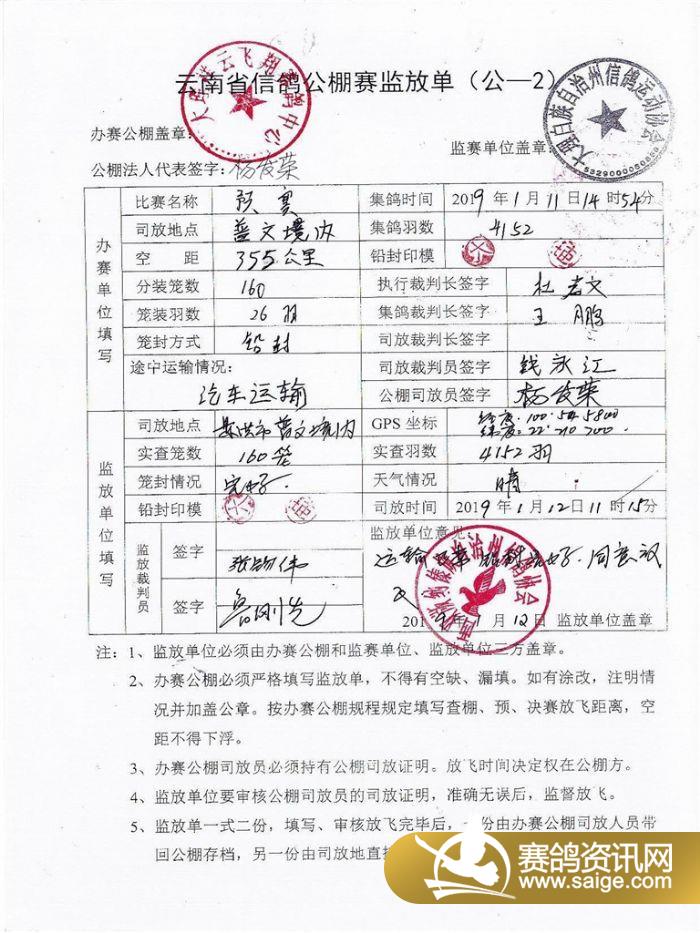 云南省信鸽公棚赛监放单（公—2）
办赛公棚盖章：
监赛单位盖章
大理白族自治州信鸽运动协会
5329000050850
公棚法人代表签字：杨发荣
办赛单位填写
比赛名称 预赛 集鸽时间 2019年1月11日14时54分
司放地点 普文境内 集鸽羽数 4152
空距 355公里 铅封印模
分装笼数 160 执行裁判长签字
笼装羽数 26羽 集鸽裁判长签字 王鹏
笼封方式 铅封 司放裁判长签字
途中运输情况： 司放裁判员签字 钱永江
汽车运输 公棚司放员签字 杨发荣
监放单位填写
司放地点 景洪市普文境内 GPS坐标
实查笼数 160笼 实查羽数 4152羽
笼封情况 完好. 天气情况 晴
铅封印模 司放时间 2019年1月12日11时15分
监放裁判员
签字
签字
监放单位意见
1月12日 监放单位盖章
注：1、监放单位必须由办赛公棚和监赛单位、监放单位三方盖章。
2、办赛公棚必须严格填写监放单，不得有空缺、漏填。如有涂改，注明情
况并加盖公章。按办赛公棚规程规定填写查棚、预、决赛放飞距离，空
距不得下浮。
3、办赛公棚司放员必须持有公棚司放证明。放飞时间决定权在公棚方。
4、监放单位要审核公棚司放员的司放证明，准确无误后，监督放飞。
5、监放单一式二份，填写、审核放飞完毕后，一份由办赛公棚司放人员带
回公棚存档，另一份由司放地直
赛鸽资讯网
www.saige.com